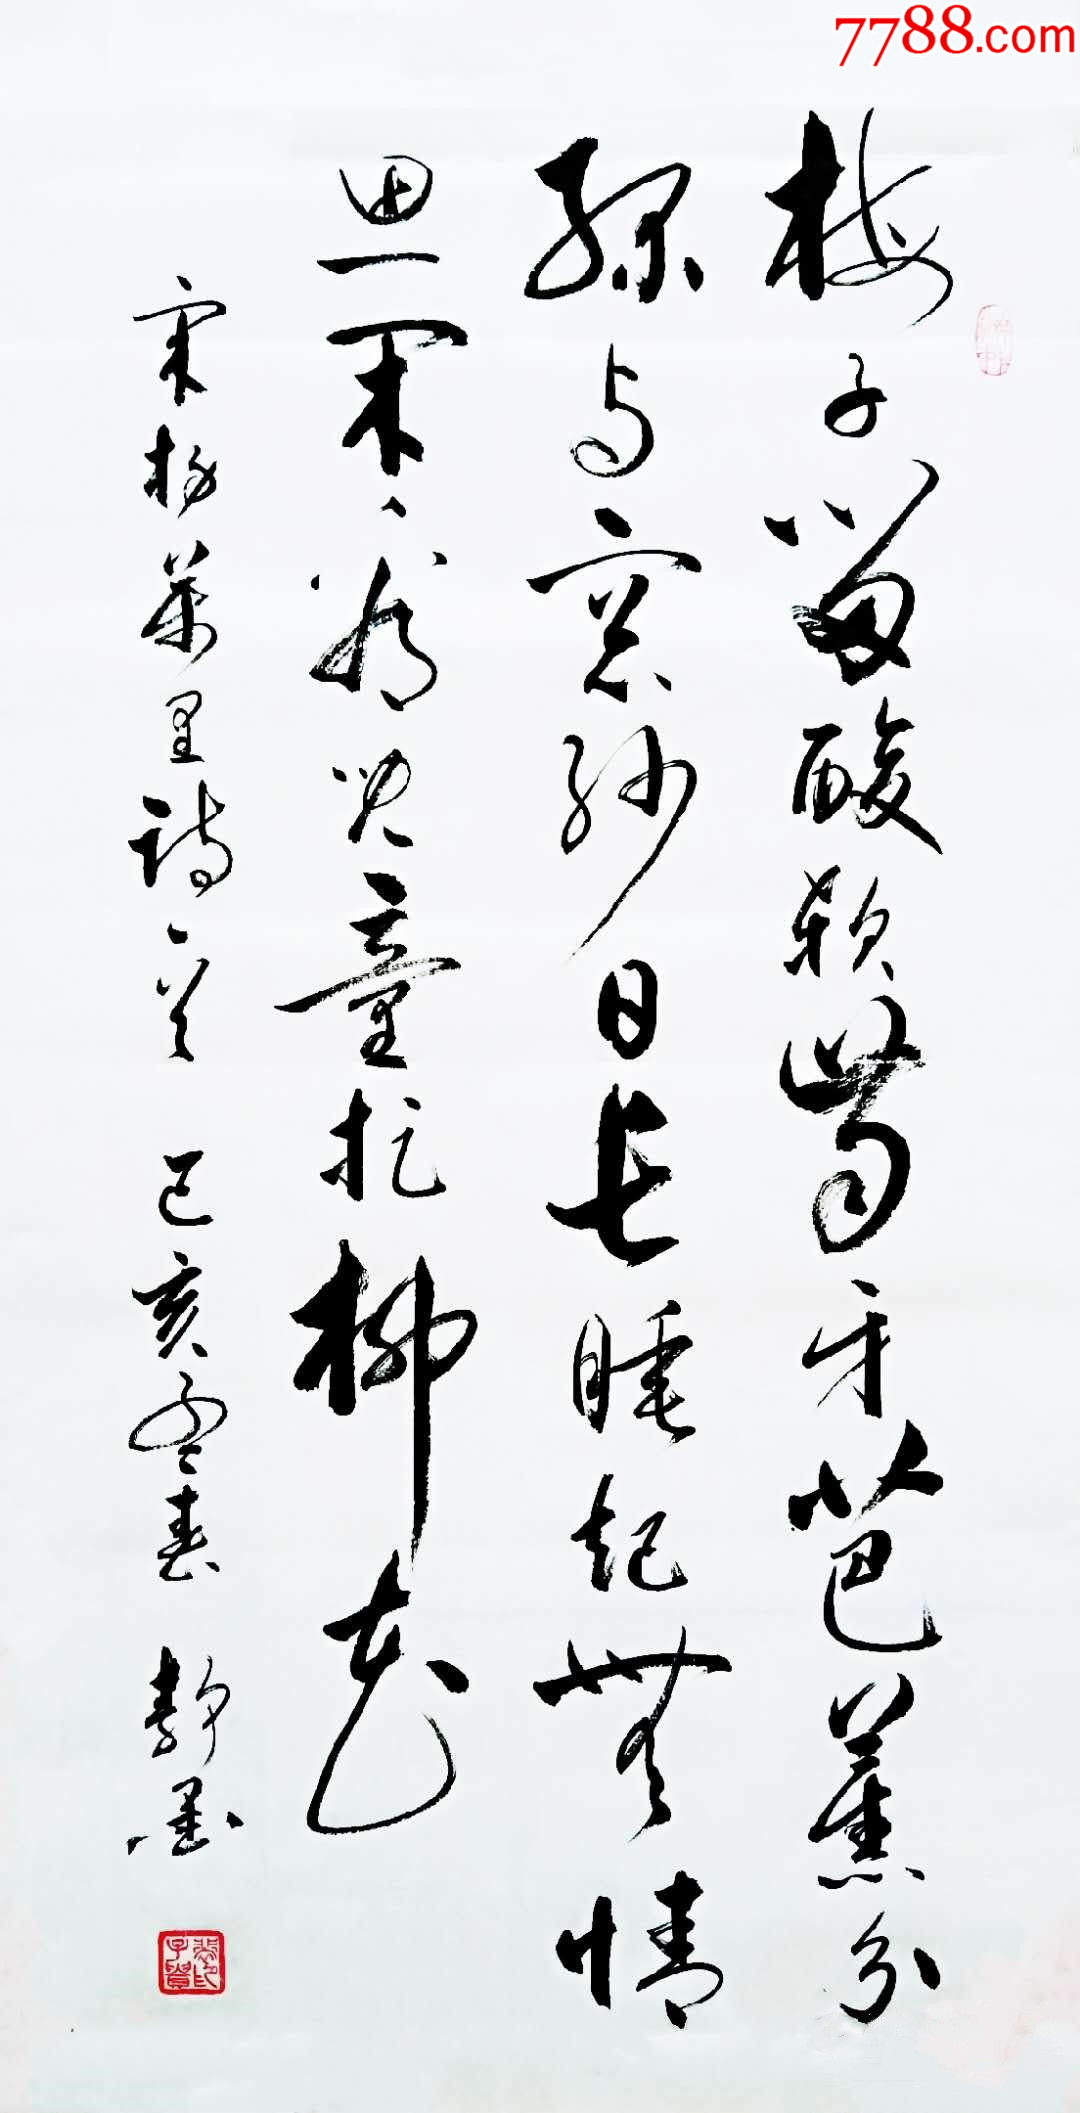 7788.com
梅子留酸软齒牙芭蕉分
绿与窓纱日长睡起無情
思闲看兒童捉柳花
宋杨萬里诗一首 己亥孟春 静墨